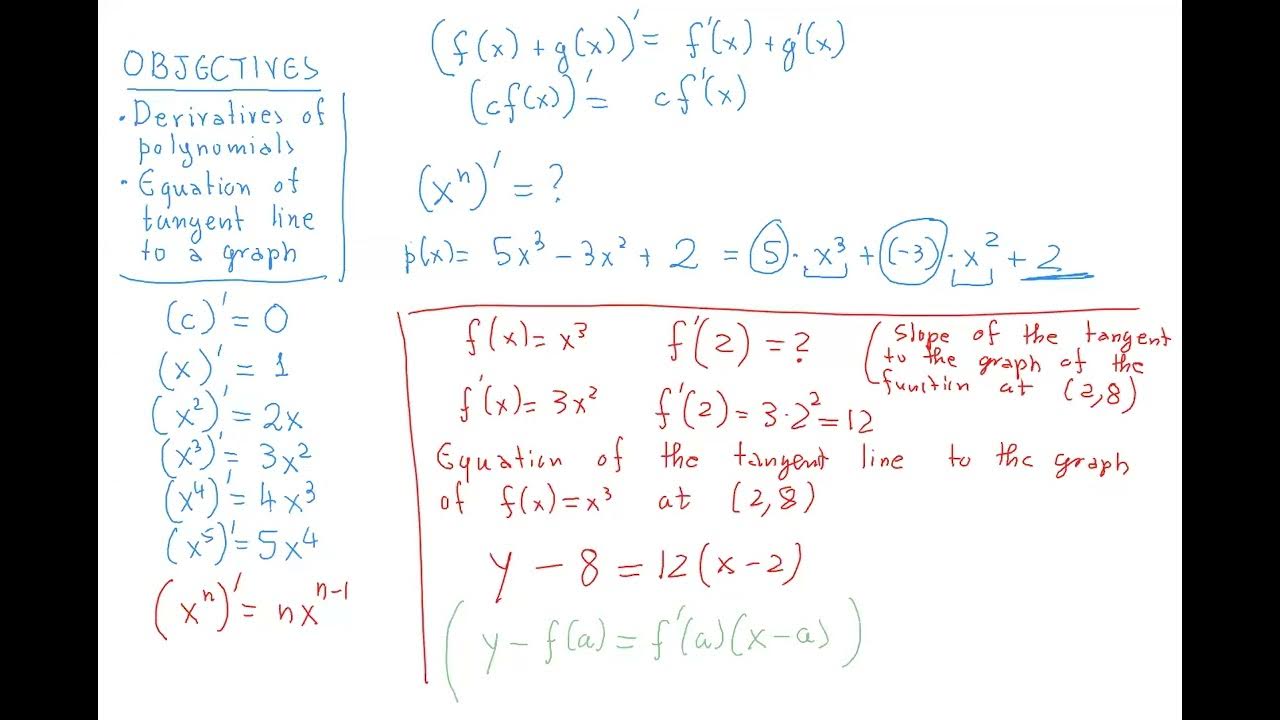 OBJECTIVES
• Derivatives of
polynomials
• Equation of
tangent line
to a graph
(c)' = 0
(x)' = 1
(x²)' = 2x
(x³)' = 3x²
(x⁴)' = 4x³
(x⁵)' = 5x⁴
(xⁿ)' = nxⁿ⁻¹
(f(x) + g(x))' = f'(x) + g'(x)
(cf(x))' = cf'(x)
(xⁿ)' = ?
p(x) = 5x³ − 3x² + 2 = 5 · x³ + (−3) · x² + 2
f(x) = x³ f'(2) = ? (Slope of the tangent
to the graph of the
function at (2,8)
f'(x) = 3x² f'(2) = 3·2² = 12
Equation of the tangent line to the graph
of f(x) = x³ at (2,8)
y − 8 = 12(x − 2)
(y − f(a) = f'(a)(x − a))